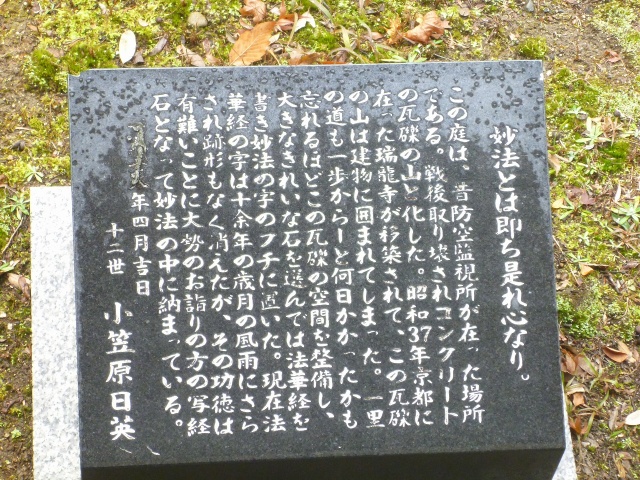 妙法とは即ち是れ心なり。
この庭は、昔防空監視所が在った場所
である。戦後取り壊されコンクリート
の瓦礫の山と化した。昭和37年京都に
在った瑞龍寺が移築されて、この瓦礫
の山は建物に囲まれてしまった。一里
の道も一歩からーと何日かかったかも
忘れるほどこの瓦礫の空間を整備し、
大きなきれいな石を選んでは法華経を
書き妙法の字のフチに置いた。現在法
華経の字は十余年の歳月の風雨にさら
され跡形もなく消えたが、その功徳は
有難いことに大勢のお詣りの方の写経
石となって妙法の中に納まっている。
年四月吉日
十二世 小笠原日英